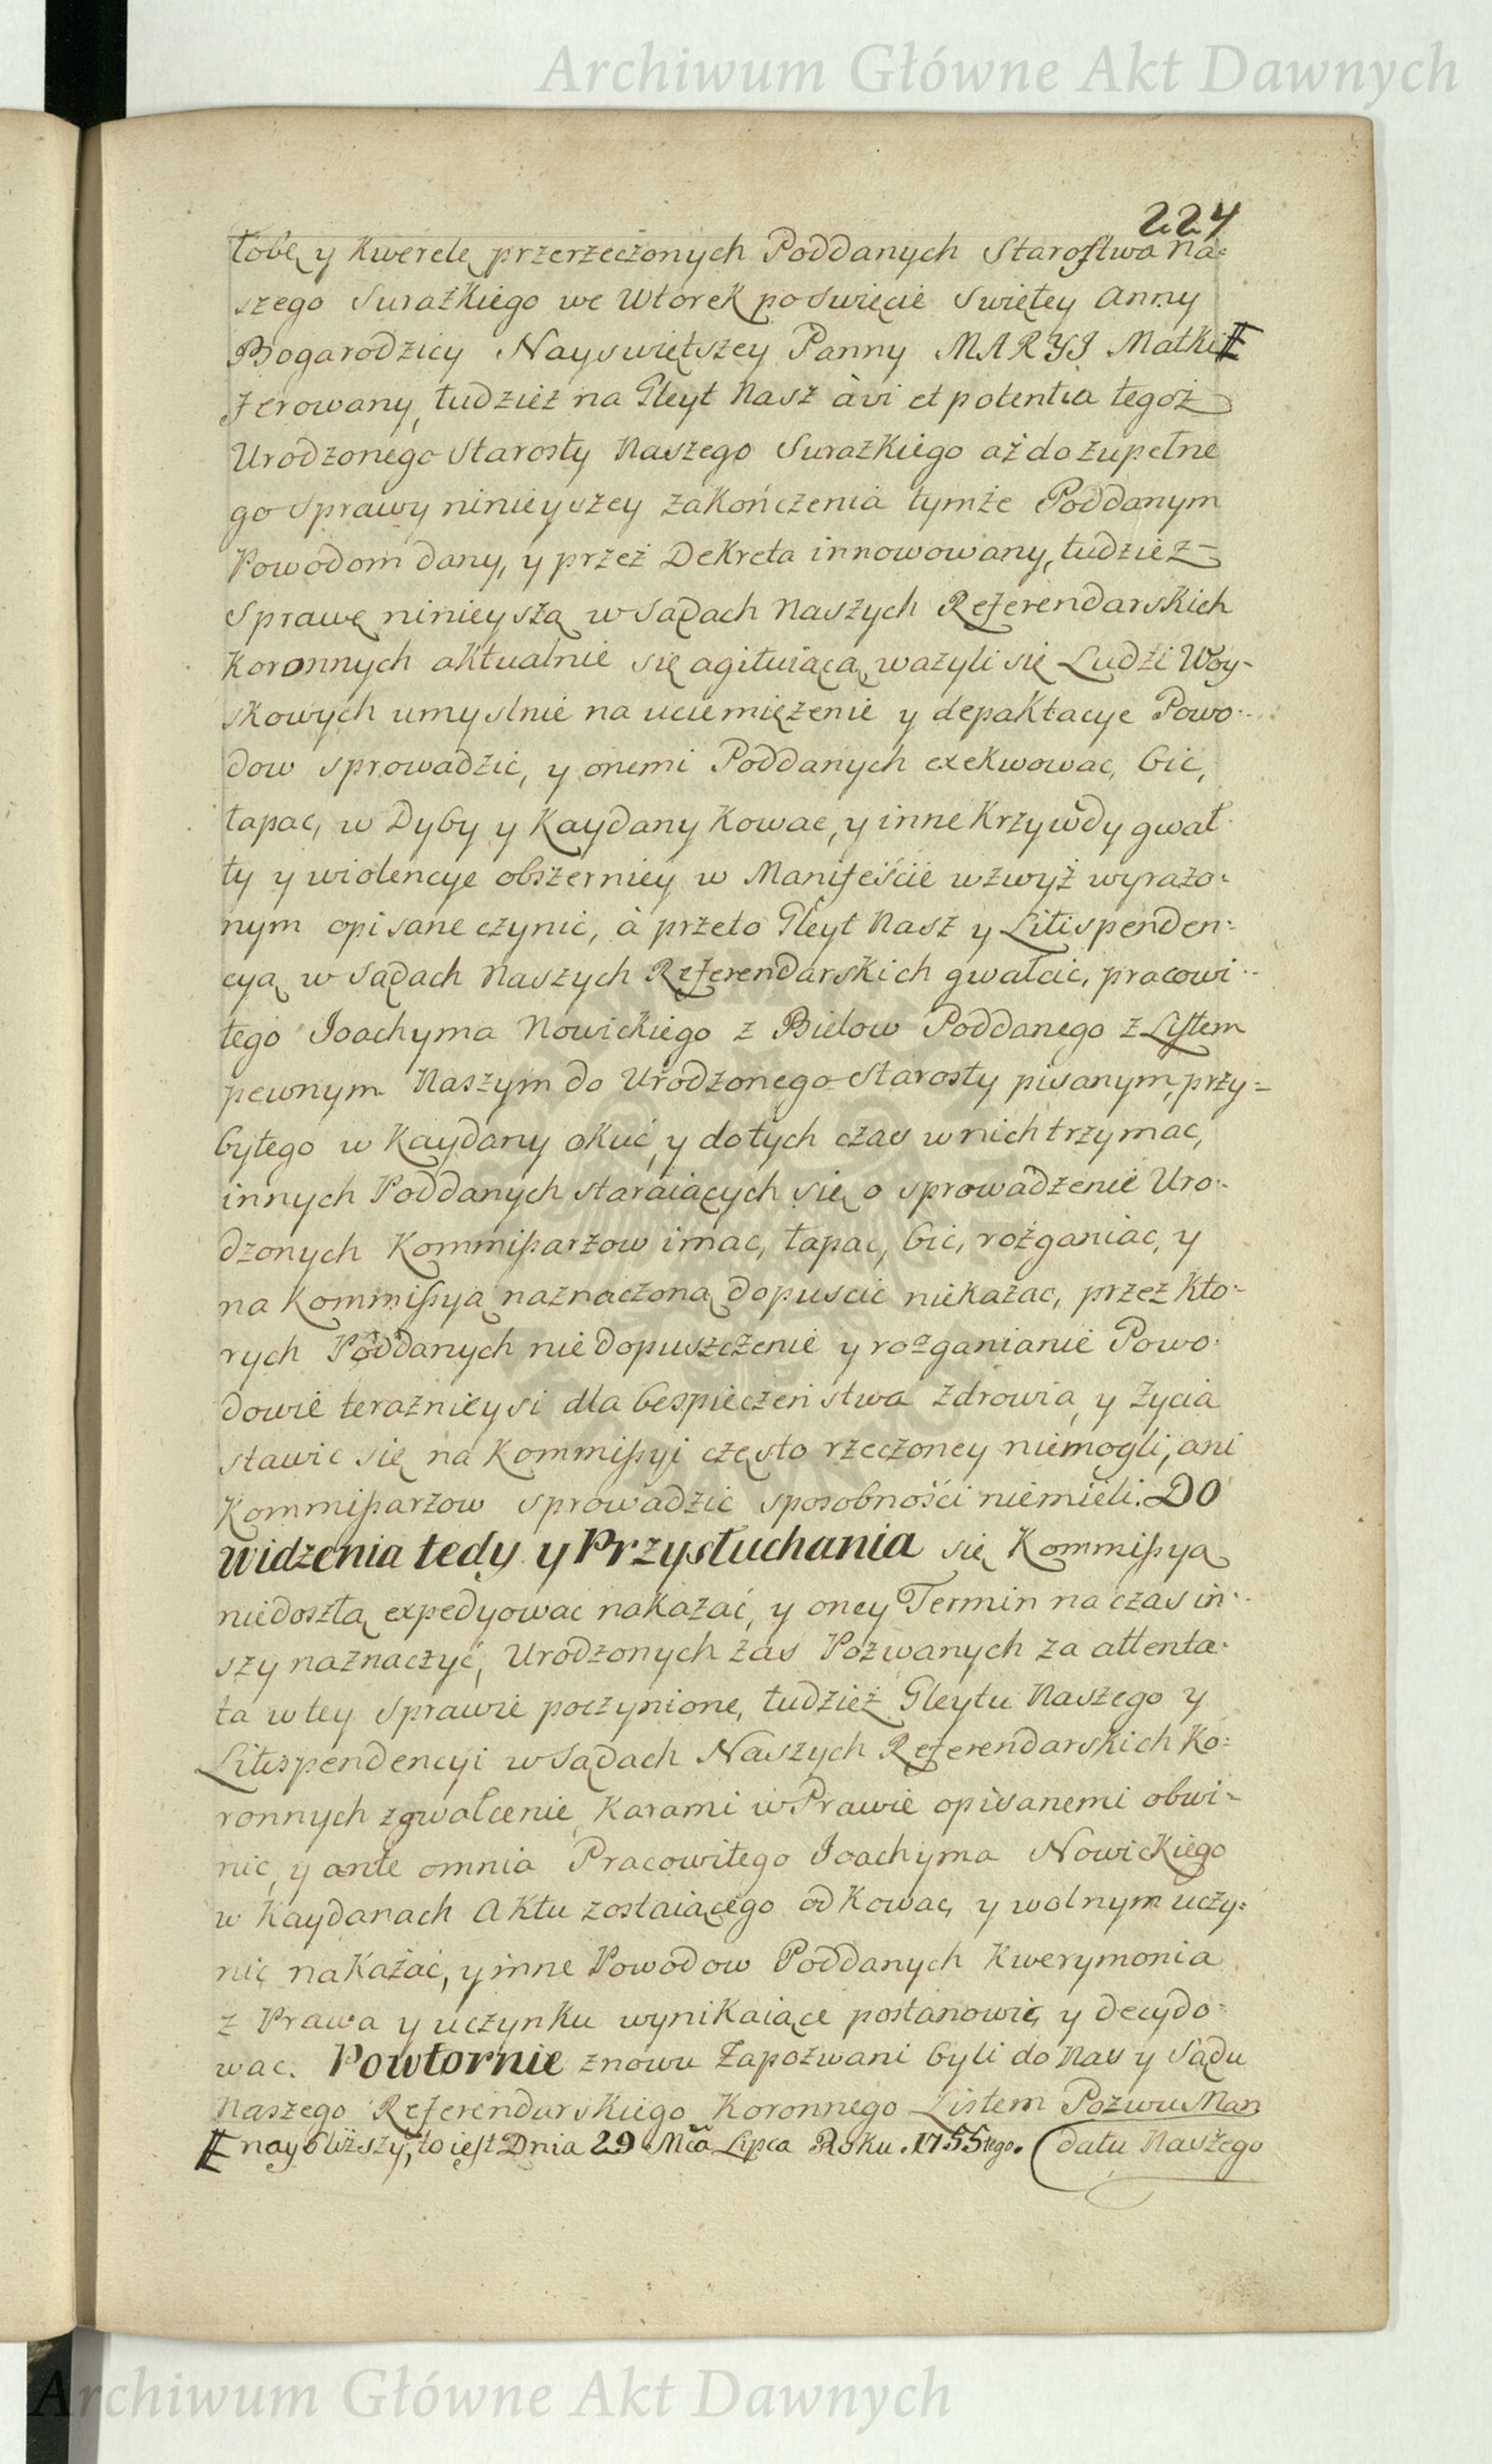 Archiwum Główne Akt Dawnych
224
łobę y Kwerelę przerzeczonych Poddanych Starostwa Na=
szego Surażkiego we Wtorek po Swięcie Swiętey Anny
Bogarodzicy Nayswiętszey Panny MARYI Matki #
ferowany, tudzież na Gleyt Nasz à vi et potentia tegoż
Urodzonego Starosty Naszego Surażkiego aż do zupełne
go Sprawy ninieyszey zakończenia tymże Poddanym
Powodom dany, y przez Dekreta innowowany, tudzież
Sprawę ninieyszą w Sądach Naszych Referendarskich
Koronnych aktualnie się agituiącą, ważyli się Ludzi Woy-
skowych umyslnie na uciemiężenie y depaktacye Powo-
dow sprowadzić, y onemi Poddanych exekwowac, bić,
łapac, w Dyby y Kaydany Kowac, y inne Krzywdy gwał
ty y wiolencye obszerniey w Manifeście wzwyż wyrażo=
nym opisane czynić, à przeto Gleyt Nasz y Litispenden=
cyą w Sądach Naszych Referendarskich gwałcić, pracowi-
tego Joachyma Nowickiego z Bielow Poddanego z Listem
pewnym Naszym do Urodzonego Starosty pisanym, przy=
byłego w Kaydany okuć, y do tych czas w nich trzymac,
innych Poddanych staraiących się o sprowadzenie Uro-
dzonych Kommißarzow imac, łapac, bić, rozganiac, y
na Kommißyą naznaczoną dopuscić niekazac, przez kto-
rych Poddanych niedopuszczenie y rozganianie Powo-
dowie teraznieysi dla bespieczeństwa zdrowia, y życia
stawić się na Kommißyi często rzeczoney niemogli, ani
Kommißarzow sprowadzić sposobności niemieli. DO
widzenia tedy y Przysłuchania się Kommißyą
niedoszłą expedyowac nakazać, y oney Termin na czas in-
szy naznaczyć, Urodzonych zas Pozwanych za attenta-
ta w tey Sprawie poczynione, tudzież Gleytu Naszego y
Litispendencyi w Sądach Naszych Referendarskich Ko=
ronnych zgwałcenie, Karami w Prawie opisanemi obwi-
nić, y ante omnia Pracowitego Joachyma Nowickiego
w Kaydanach Aktu zostaiącego odkowac, y wolnym uczy=
nić nakazać, y inne Powodow Poddanych Kwerymonia
z Prawa y uczynku wynikaiące postanowić, y decydo=
wac. Powtornie znowu Zapozwani byli do Nas y Sądu
Naszego Referendarskiego Koronnego Listem Pozwu Man
# naybliższy, to iest Dnia 29 Mca Lipca Roku 1755tego. (datu Naszego
Archiwum Główne Akt Dawnych